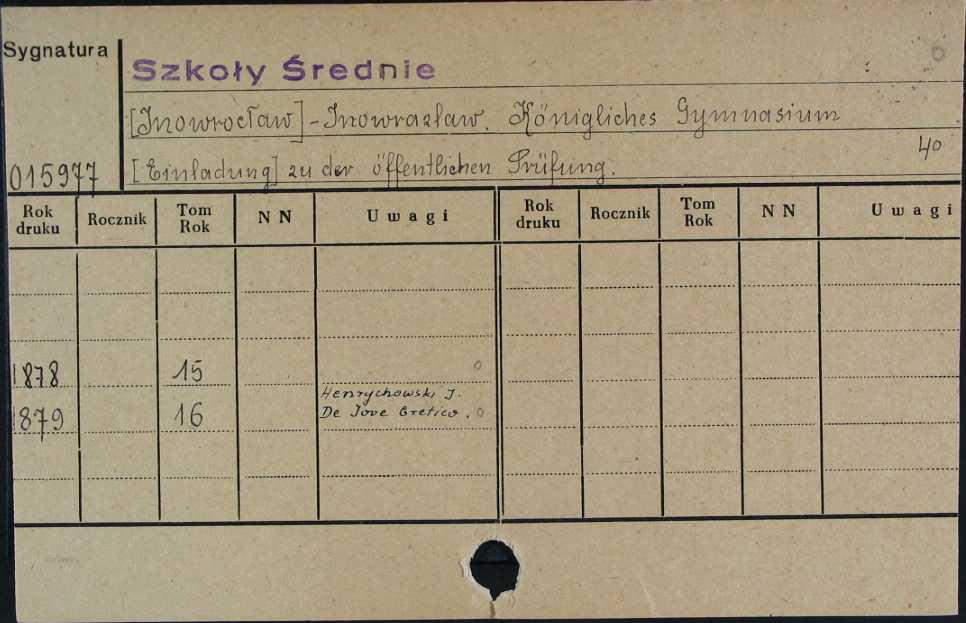 Sygnatura
Szkoły Średnie
[Inowrocław] - Inowrazław. Königliches Gymnasium
40
015977
[Einladung] zu der öffentlichen Prüfung.
Rok druku Rocznik Tom Rok N N Uwagi Rok druku Rocznik Tom Rok N N Uwagi
1878 15 0
Henrychowski J.
1879 16 De Jove Cretico. 0